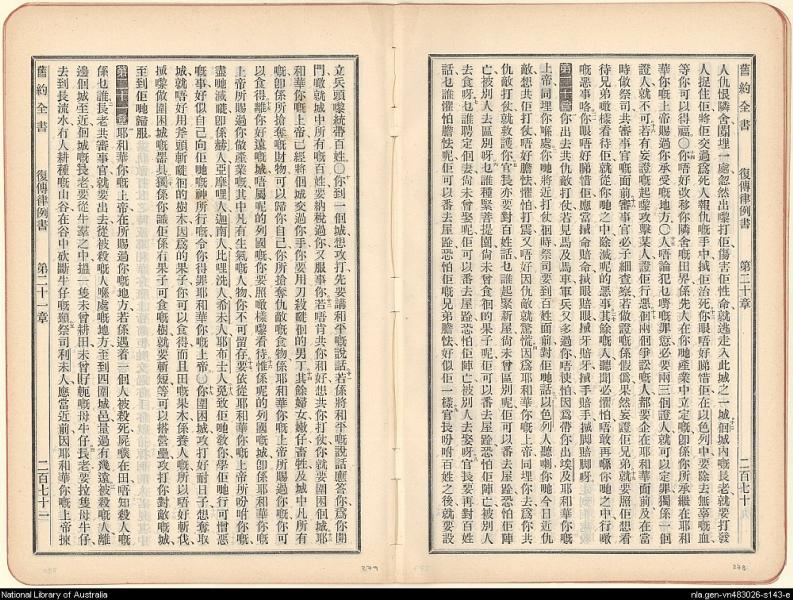 舊約全書 復傳律例書 第二十章 二百七十
人仇恨隣舍閶埋一處忽然出嚟打佢傷害佢性命就逃走入此城之一城個城內嘅長老就要打發
人捉住佢將佢交過爲死人報仇嘅手中拭佢治死你眼唔好睇惜佢在以色列中要除去無辜嘅血
等你可以得福〇你唔好改移你隣舍嘅田界係先人在你哋產業中立定嘅卽係你所承繼在耶和
華你嘅上帝賜過你承受嘅地方〇人唔論犯乜嘢嘅罪愆必要兩三個證人就可以定罪獨係一個
證人就不可若有妄證嘅起嚟攻擊某人證佢行惡個兩個爭訟嘅人都要企在耶和華面前及在當
時做祭司共審事官嘅面前審事官必子細查察若做證嘅係假僞果然妄證佢兄弟就要照佢想看
待兄弟噉樣看待佢就從你哋之中除滅呢的惡事其餘嘅人聽聞必懼怕唔敢再噪你哋之中行噉
嘅惡事咯你眼唔好睇惜佢應當拭命賠命拭眼賠眼拭牙賠牙拭手賠手拭脚賠脚呀
第二十章你出去共仇敵打仗若見馬及馬車軍兵又多過你唔使怕因爲帶你出埃及耶和華你嘅
上帝同埋你喺處你哋將近打仗個時祭司要到百姓面前對佢哋話以色列人聽喇你哋今日近仇
敵想共佢打仗唔好膽怯懼怕打震又唔好因仇敵就驚慌因爲耶和華你嘅上帝同埋你去爲你共
仇敵打仗就救護你官長亦要對百姓話乜誰起緊新屋尙未曾區別呢佢可以番去屋踎恐怕佢陣
亡被別人去區別呀乜誰種緊菩提園尙未曾食個的果子呢佢可以番去屋踎恐怕佢陣亡被別人
去食呀乜誰聘定個妻尙未曾娶呢佢可以番去屋踎恐怕佢陣亡被別人去娶呀官長要再對百姓
話乜誰懼怕膽怯呢佢可以番去屋踎恐怕佢嘅兄弟膽怯好似佢一樣官長吩咐百姓之後就要設
立兵頭嚟統帶百姓〇你到一個城想攻打先要講和平嘅說話若係將和平嘅說話應答你爲你開
門噉就城中所有嘅百姓要納税過你又服事你若唔肯共你和好想共你打仗你就要圍困個城耶
和華你嘅上帝已經將個城交過你手你要用刀殺個的男丁其餘婦女嫩仔畜牲及城中凡所有
嘅卽係所搶奪嘅財物可以歸你自己你所搶奪仇敵嘅食物係耶和華你嘅上帝所賜過你嘅你可
以食得離你好遠嘅城唔屬呢的列國嘅你要照噉樣嚟看待惟係呢的列國嘅城卽係耶和華你嘅
上帝所賜過你做產業嘅其中凡有生氣嘅人物你不可留存要依從耶和華你嘅上帝所吩咐你嘅
盡哋滅絕卽係赫人亞摩哩人迦南人比哩洗人希未人耶布士人免致佢哋敎你學佢哋行可憎惡
嘅事好似自己向佢哋嘅神所行嘅令你得罪耶和華你嘅上帝〇你圍困城攻打好耐日子想奪取
城就唔好用斧頭斬個的樹木因爲的果子你可以食得而且田嘅果木係養人嘅所以唔好斬伐
拭嚟做圍困城嘅器具獨係你識佢係冇果子可食嘅樹就要斬短等可以搭營壘攻打你對敵嘅城
至到佢哋歸服
第二十一章耶和華你嘅上帝在所賜過你嘅地方若係遇着一個人被殺死屍喺在田唔知殺人嘅
係乜誰長老共審事官就要出去從被殺嘅人喺處嘅地方至到四圍城邑量過有幾遠被殺嘅人離
邊個城至近個城嘅長老要從牛羣之中搵一隻未曾耕田未曾孭軛嘅母牛仔長老要拉隻母牛仔
去到長流水冇人耕種嘅山谷在谷中砍斷牛仔嘅頸祭司利未人應當近前因耶和華你嘅上帝揀
舊約全書 復傳律例書 第二十一章 二百七十二
279
278
National Library of Australia
nla.gen-vn483026-s143-e